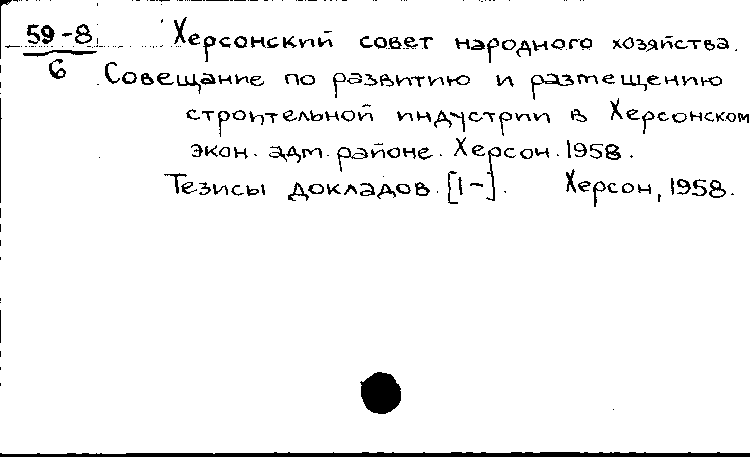 59-8 Херсонский совет народного хозяйства.
6 Совещание по развитию и размещению
строительной индустрии в Херсонском
экон. адм. районе. Херсон. 1958.
Тезисы докладов. [1-]. Херсон, 1958.